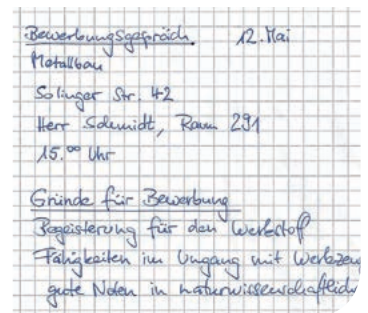 Bewerbungsgespräch 12. Mai
Metallbau
Solinger Str. 42
Herr Schmidt, Raum 291
15.°° Uhr
Gründe für Bewerbung
Begeisterung für den Werkstoff
Fähigkeiten im Umgang mit Werkzeu
gute Noten in naturwissenschaftlich